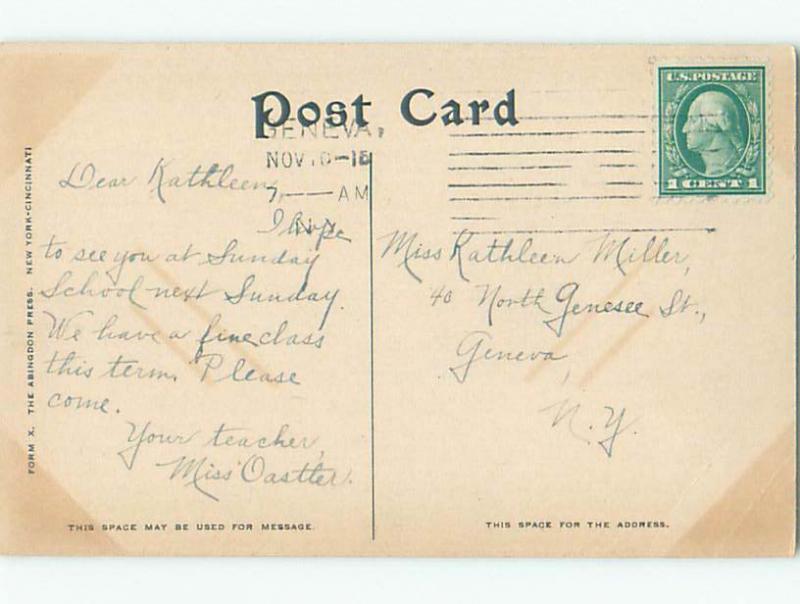 Post Card
U.S. POSTAGE
1 CENT 1
GENEVA,
NOV 10-15
7 — AM
N.Y.
Dear Kathleen,
I hope
to see you at Sunday
School next Sunday.
We have a fine class
this term. Please
come.
Your teacher,
Miss Oastler.
Miss Kathleen Miller,
40 North Genesee St.,
Geneva,
N.Y.
THIS SPACE MAY BE USED FOR MESSAGE.
THIS SPACE FOR THE ADDRESS.
FORM X. THE ABINGDON PRESS. NEW YORK-CINCINNATI